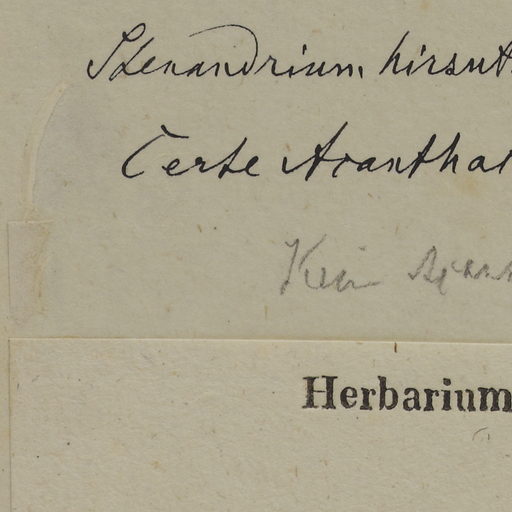 Stenandrium hirsut
Certe Acanthac
Kein Acant
Herbarium